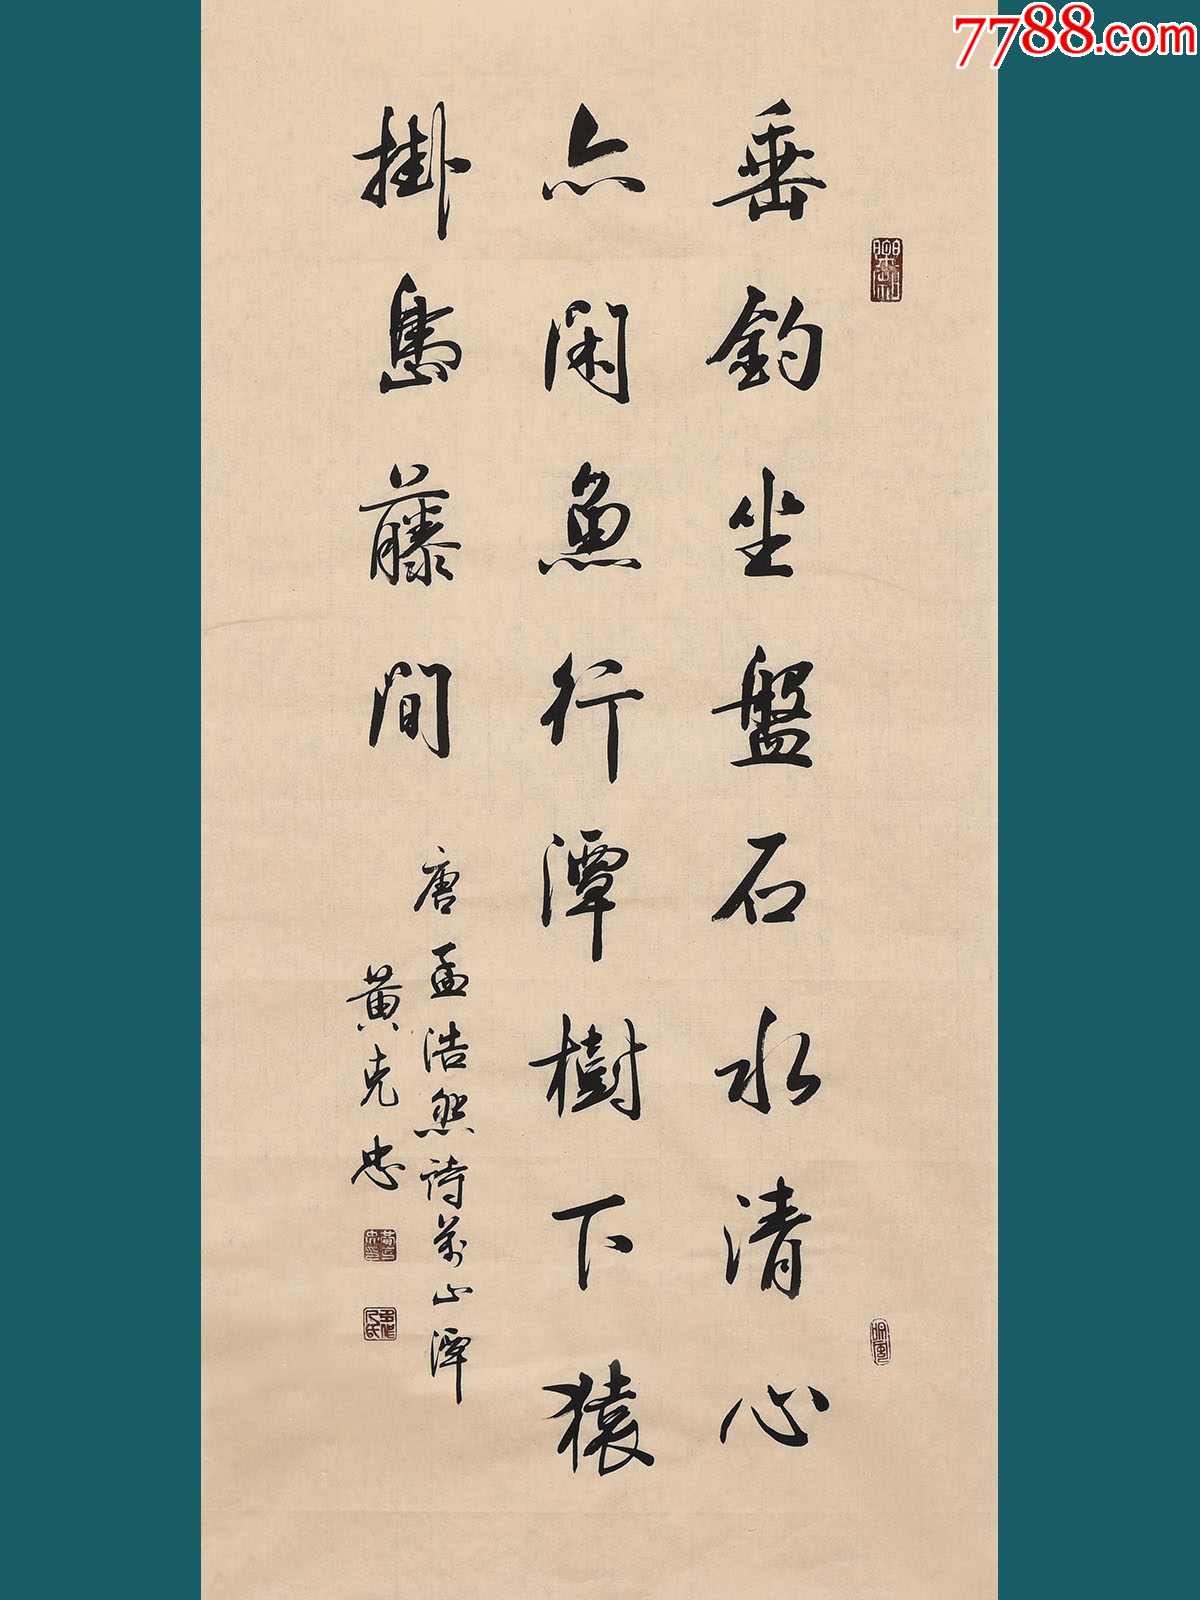 垂釣坐盤石水清心
亦閑魚行潭樹下猿
掛島藤間
唐孟浩然詩萬山潭
黄克忠
7788.com